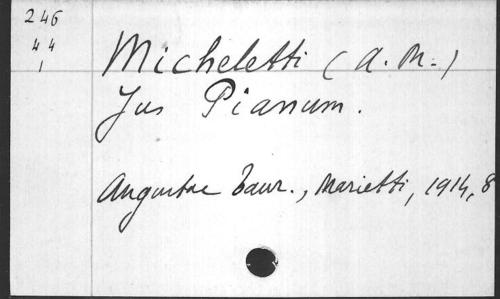 246
44
1
Micheletti (A. M.)
Jus Pianum.
Augustae Taur., Marietti, 1914, 8